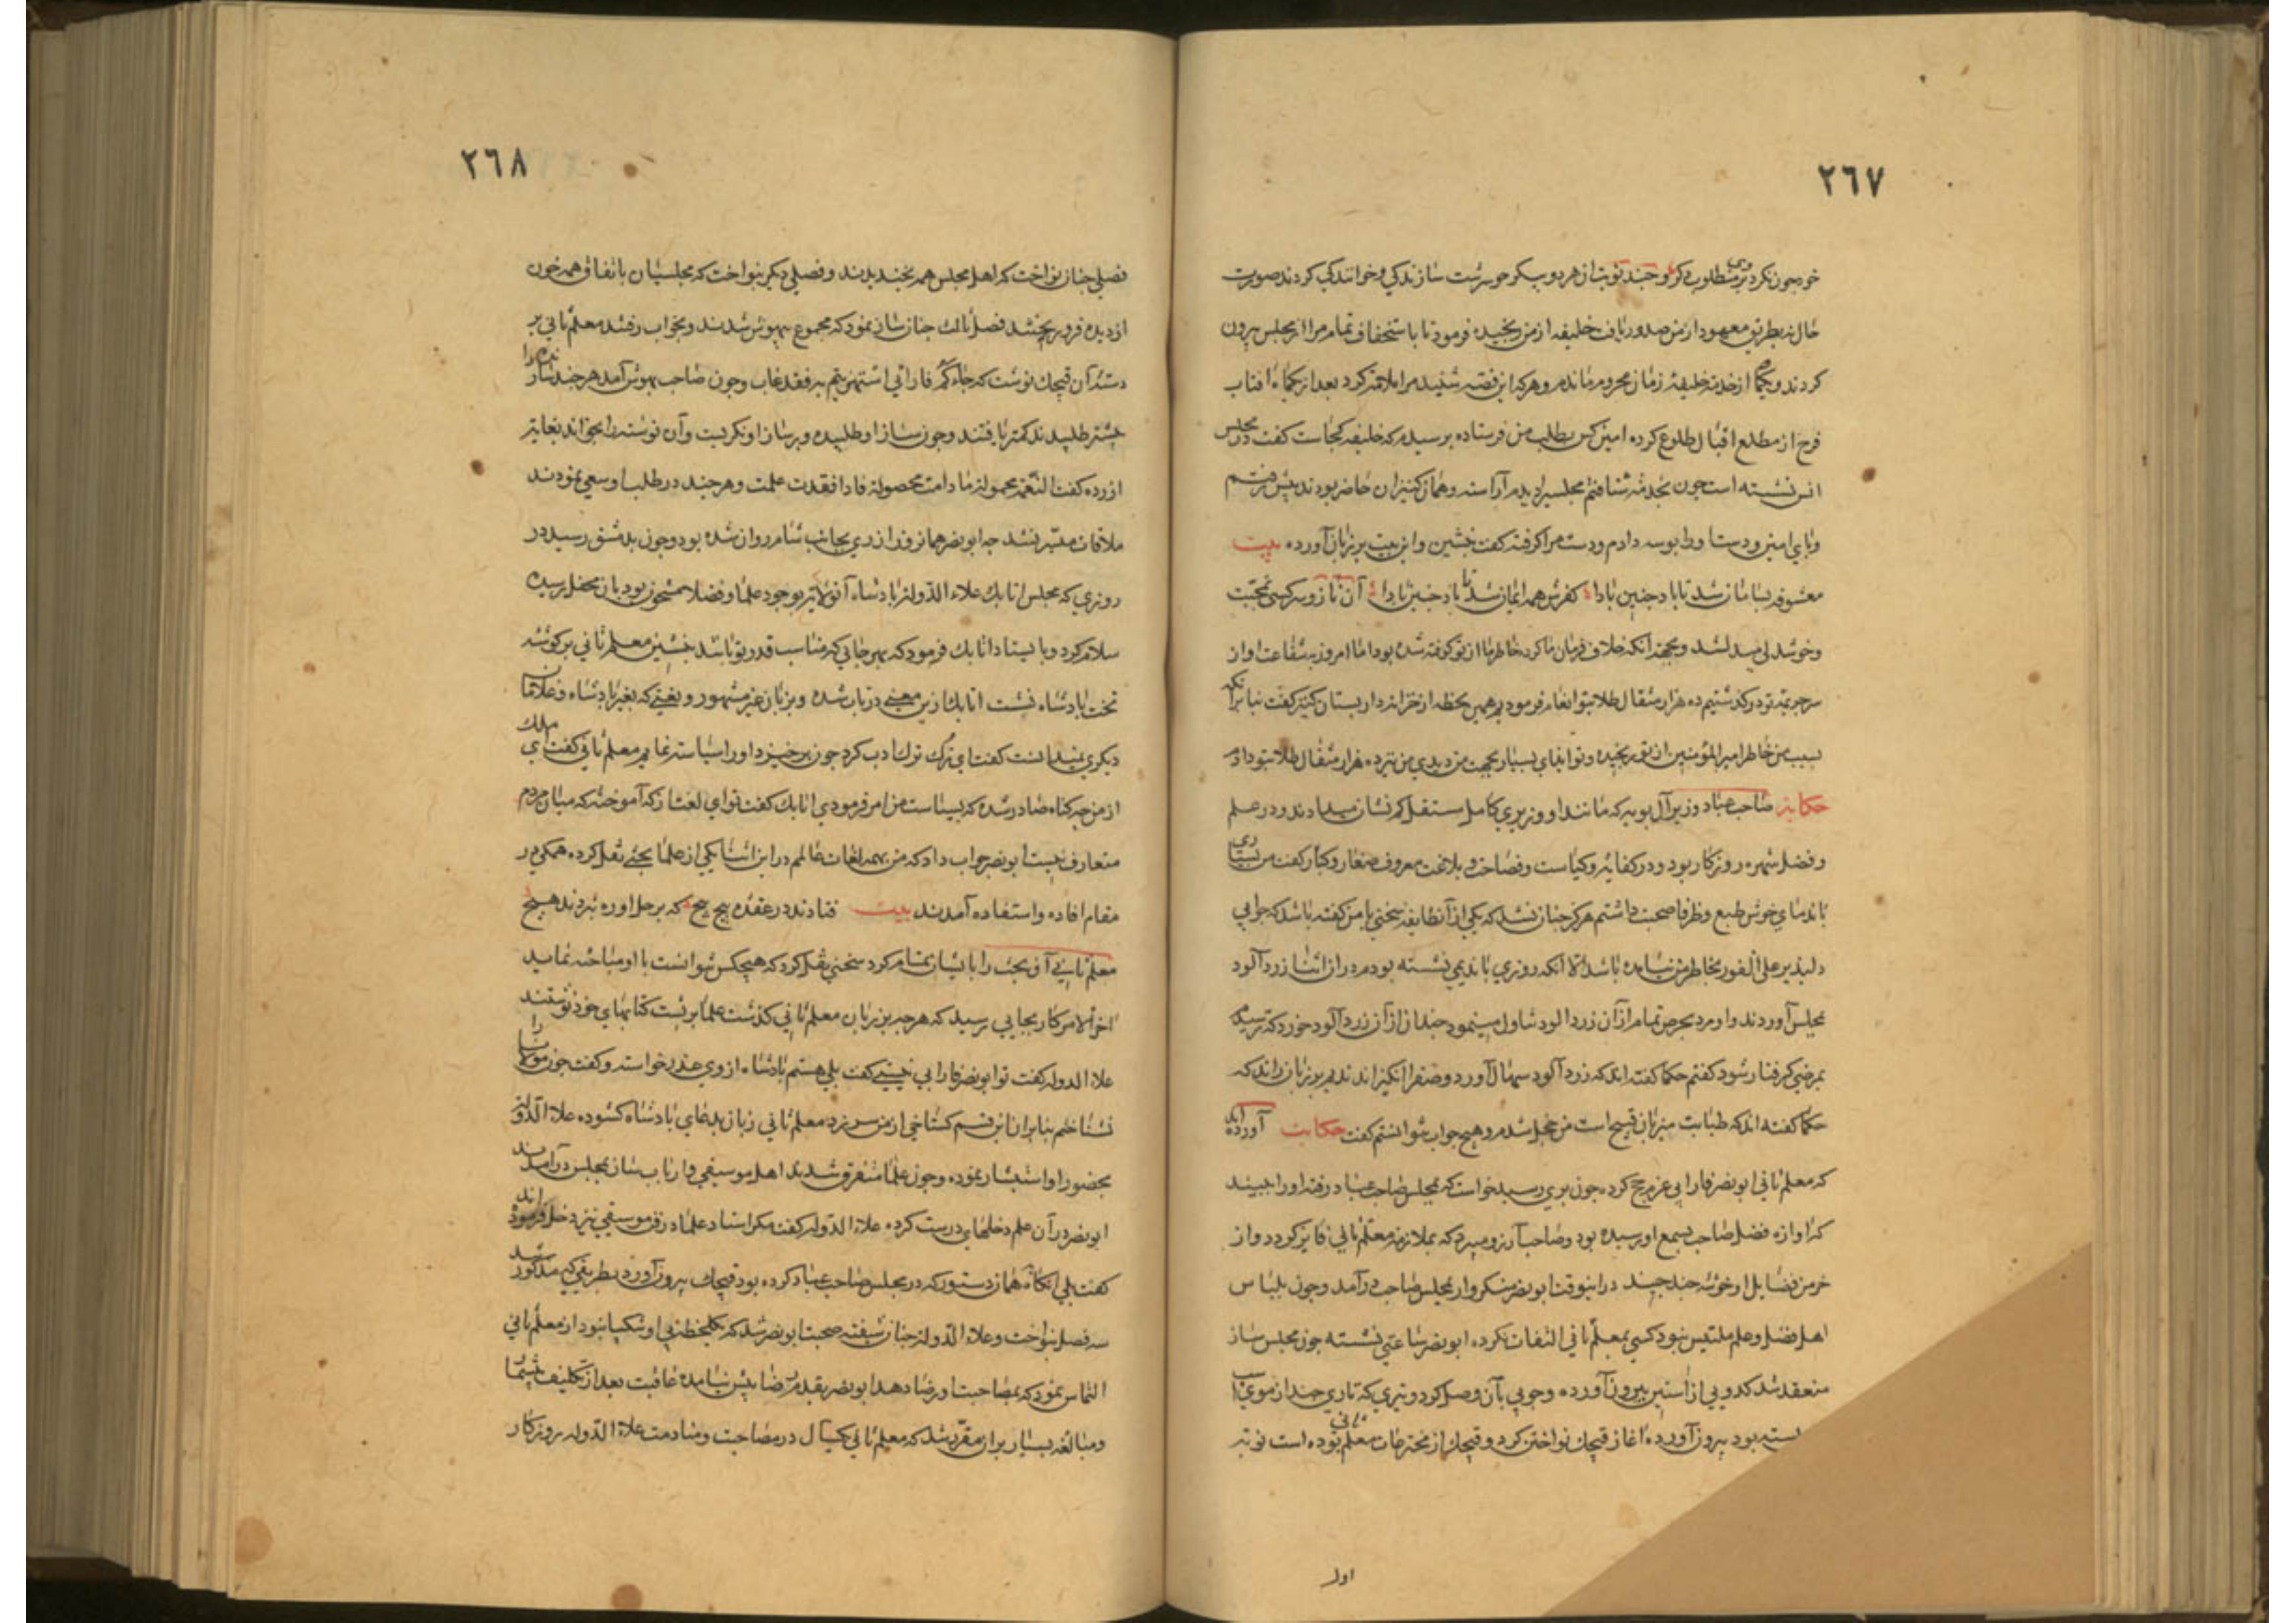 ٢٦٧
حال نه بطریق معهود از من صدور یافت خلیفه از من رنجیده فرمود تا باستخفاف تمام مرا از مجلس بیرون
کردند و از خدمت خلیفه زمان محروم ماندم و هر که این قصه شنید مرا ملامت کرد بعد از یکماه افتاب
فرخ از مطلع اقبال طلوع کرده امین کس بطلب من فرستاده پرسیدم که خلیفه کجاست کفت در مجلس
انس نشسته است چون بخدمت شتافتم مجلسی دیدم آراسته و همان کنیزان حاضر بودند پیش رفتم
و پای امین و دست او را بوسه دادم و دست مرا کرفته کفت بنشین و این بیت بر زبان آورده بیت
معشوقه بسامان شد تا باد چنین بادا کفرش همه ایمان شد تا باد چنین بادا
و خوشدلی مبدل شد و بجهة آنکه خلاف فرمان ما کرد خاطر ما از تو کوفته شده بود اما امروز بشفاعت او از
سر جریمه تو درکذشتیم ده هزار مثقال طلا بتو انعام فرمودیم همین لحظه از خزانه‌دار بستان کنیز کفت بنابر آنکه
بسبب من خاطر امیر المؤمنین از تو رنجیده و تو ایذای بسیار بجهت من دیدی من نیز ده هزار مثقال طلا بتو دادم
حکایة صاحب عباد وزیر آل بویه که مانند او وزیری کامل مستقل کم نشان میدادند و در علم
و فضل شهره روزکار بود و در کفایة و کیاست و فصاحت و بلاغت معروف صغار و کبار کفت من بسیاری
با ندمای خوش طبع و ظرفا صحبت داشتم هرکز چنان نشد که یکی از آن طایفه سخنی با من کفته باشد که جوابی
دلپذیر علی الفور بخاطر من نیامده باشد الا آنکه روزی با ندیمی نشسته بودم در آن اثنا زردآلود
بمجلس آوردند و او مرد بحرص تمام از آن زردالود تناول مینمود چندان از آن زردآلود خورد که ترسیدم
بمرضی کرفتار شود کفتم حکما کفته اند که زردآلود سهال آورد و صفرا انکیزاند ندیم بر زبان راند که
حکما کفته اند که طبابت میزبان قبیح است من خجل شدم و هیچ جواب نتوانستم کفت حکایت آورده اند
که معلم ثانی ابو نصر فارابی عزم حج کرد چون بری رسید خواست که بمجلس صاحب عباد رفته او را ببیند
که اوازه فضل صاحب بسمع او رسیده بود و صاحب آرزو میبرد که بملازمت معلم ثانی فایز کردد و از
خرمن فضایل او خوشه چند چیند در اینوقت ابو نصر منکروار بمجلس صاحب درآمد و چون بلباس
اهل فضل و علم ملتبس نبود کسی بمعلم ثانی التفات نکرده ابو نصر ساعتی نشسته چون مجلس ساز
منعقد شد کدویی از آستین بیرون آورده و چوبی بآن وصل کرد و تری که تاری چند از موی اسب
بسته بود بیرون آورده آغاز قیچک نواختن کرد و قیچک از مخترعات معلم ثانی بوده است نوبت
اول
٢٦٨
فصلی چنان نواخت که اهل مجلس همه بخندیدند و فصلی دیکر بنواخت که مجلسیان باتفاق همه خون
از دیده فرو ریختند فصل ثالث چنان ساز نمود که مجموع بیهوش شدند و بخواب رفتند معلم ثانی بر
دسته آن قیچک نوشت که جاءکم فارابی استهزیتم به فقد غاب و چون صاحب بهوش آمد هر چند
بیشتر طلبیدند کمتر یافتند و چون ساز او طلبیده و بر ساز او نکریست و آن نوشته را بخواند بغایة
ازرده کفت النعمة مجهولة ما دامت محصولة فاذا فقدت علمت و هر چند در طلب او سعی نمودند
ملاقات میسر نشد چه ابو نصر همانروز از ری بجانب شام روان شده بود و چون بدمشق رسید در
روزی که مجلس اتابک علاء الدوله پادشاه آنولایة بوجود علما و فضلا مشحون بود بان محفل رسیده
سلام کرد و بایستاد اتابک فرمود که بهر جایی که مناسب قدر تو باشد بنشین معلم ثانی بر کوشه
تخت پادشاه نشست اتابک ازین معنی در تاب شده و بزبان غیر مشهور و بلغتی که بغیر پادشاه و غلامان
دیکری نمیدانست کفت ای ترک ترک ادب کرد چون برخیزد او را سیاست نماییم معلم ثانی کفت ای ملک
از من چه کناه صادر شده که بسیاست من امر فرمودی اتابک کفت تو این لغت از که آموختهٔ که میان مردم
متعارف نیست ابو نصر جواب داد که من بهمه لغات عالمم در این اثنا یکی از علما بحثی نقل کرده همکی در
مقام افاده و استفاده آمدند بیت فتادند در عقدهٔ پیچ پیچ که بر حل او ره نبردند هیچ
معلم ثانی آن بحث را با ایشان تمام کرد سخنی نقل کرد که هیچکس نتوانست با او مباحثه نماید
اخر الامر کار بجایی رسید که هر چه بر زبان معلم ثانی کذشت علما بر پشت کتابهای خود نوشتند
علاء الدوله کفت تو ابو نصر فارابی نیستی کفت بلی هستم پادشاه از وی عذر خواسته و کفت چون ترا
نشناختم بنابر ان این قسم کستاخی از من سر زد معلم ثانی زبان بدعای پادشاه کشوده علاء الدوله
بحضور او استبشار نموده و چون علما متفرق شدند اهل موسیقی و ارباب ساز بمجلس درآمدند
ابو نصر در آن علم دخلهای درست کرده علاء الدوله کفت مکر استاد علما در فن موسیقی نیز دخل فرموده اند
کفت بلی آنکاه همان دستور که در مجلس صاحب عباد کرده بود قیچک بیرون آورد بطریقی که مذکور شد
سه فصل بنواخت و علاء الدوله چنان شیفته صحبت ابو نصر شد که یکلحظه بی او شکیبا نبود از معلم ثانی
التماس نمود که بمصاحبت او رضا دهد ابو نصر بقدم رضا پیش نیامده عاقبت بعد از تکلیف بیشمار
و مبالغه بسیار بران مقرر شد که معلم ثانی یکسال در مصاحبت و منادمت علاء الدوله روزکار